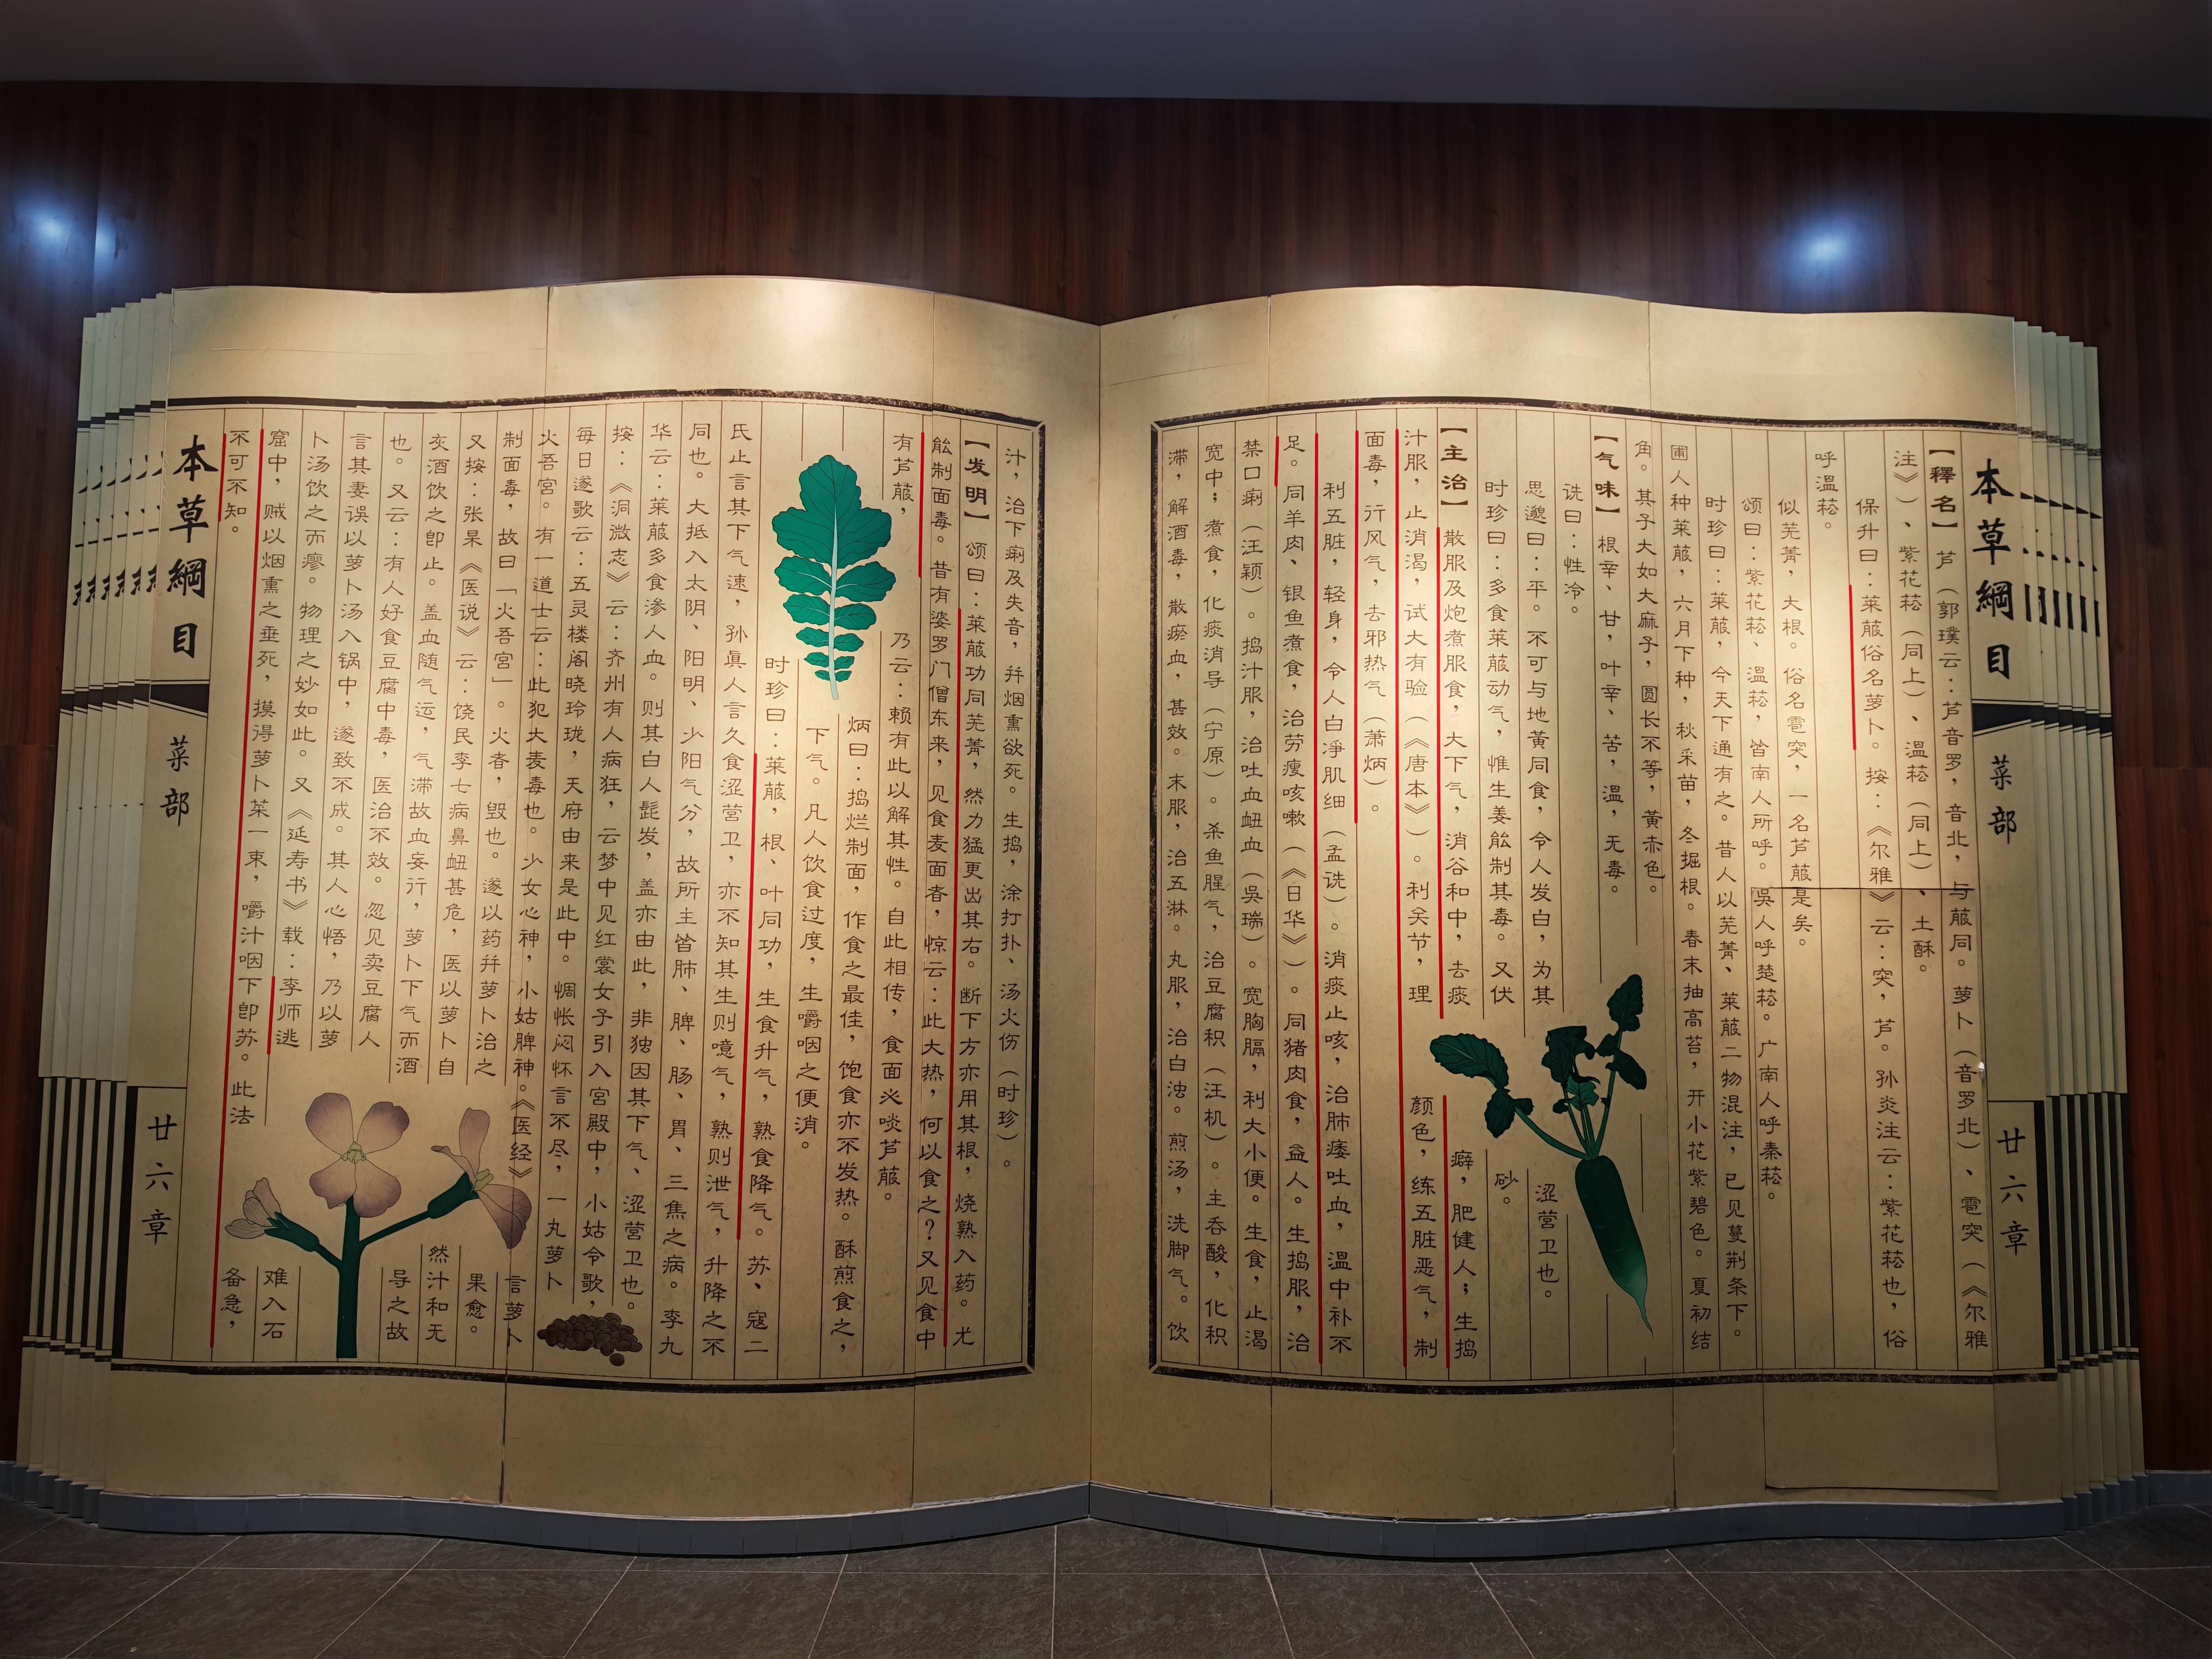 本草綱目 菜部 廿六章
【釋名】芦（郭璞云：芦音罗，音北，与菔同。萝卜（音罗北）、雹突（《尔雅
注》）、紫花菘（同上）、温菘（同上）、土酥。
保升曰：莱菔俗名萝卜。按：《尔雅》云：突，芦。孙炎注云：紫花菘也，俗
呼温菘。
似芜菁，大根。俗名雹突，一名芦菔是矣。
颂曰：紫花菘、温菘，皆南人所呼。吴人呼楚菘。广南人呼秦菘。
时珍曰：莱菔，今天下通有之。昔人以芜菁、莱菔二物混注，已见蔓荆条下。
圃人种莱菔，六月下种，秋采苗，冬掘根。春末抽高苔，开小花紫碧色。夏初结
角。其子大如大麻子，圆长不等，黄赤色。
【气味】根辛、甘，叶辛、苦，温，无毒。
诜曰：性冷。
思邈曰：平。不可与地黄同食，令人发白，为其
涩营卫也。
时珍曰：多食莱菔动气，惟生姜能制其毒。又伏
砂。
【主治】散服及炮煮服食，大下气，消谷和中，去痰
癖，肥健人；生捣
汁服，止消渴，试大有验（《唐本》）。利关节，理
颜色，练五脏恶气，制
面毒，行风气，去邪热气（萧炳）。
利五脏，轻身，令人白净肌细（孟诜）。消痰止咳，治肺痿吐血，温中补不
足。同羊肉、银鱼煮食，治劳瘦咳嗽（《日华》）。同猪肉食，益人。生捣服，治
禁口痢（汪颖）。捣汁服，治吐血衄血（吴瑞）。宽胸膈，利大小便。生食，止渴
宽中；煮食，化痰消导（宁原）。杀鱼腥气，治豆腐积（汪机）。主吞酸，化积
滞，解酒毒，散瘀血，甚效。末服，治五淋。丸服，治白浊。煎汤，洗脚气。饮
汁，治下痢及失音，并烟熏欲死。生捣，涂打扑、汤火伤（时珍）。
【发明】颂曰：莱菔功同芜菁，然力猛更出其右。断下方亦用其根，烧熟入药。尤
能制面毒。昔有婆罗门僧东来，见食麦面者，惊云：此大热，何以食之？又见食中
有芦菔，
乃云：赖有此以解其性。自此相传，食面必啖芦菔。
炳曰：捣烂制面，作食之最佳，饱食亦不发热。酥煎食之，
下气。凡人饮食过度，生嚼咽之便消。
时珍曰：莱菔，根、叶同功，生食升气，熟食降气。苏、寇二
氏止言其下气速，孙真人言久食涩营卫，亦不知其生则噫气，熟则泄气，升降之不
同也。大抵入太阴、阳明、少阳气分，故所主皆肺、脾、肠、胃、三焦之病。李九
华云：莱菔多食渗人血。则其白人髭发，盖亦由此，非独因其下气、涩营卫也。
按：《洞微志》云：齐州有人病狂，云梦中见红裳女子引入宫殿中，小姑令歌，
每日遂歌云：五灵楼阁晓玲珑，天府由来是此中。惆怅闷怀言不尽，一丸萝卜
火吾宫。有一道士云：此犯大麦毒也。少女心神，小姑脾神。《医经》
言萝卜
制面毒，故曰「火吾宫」。火者，毁也。遂以药并萝卜治之
果愈。
又按：张杲《医说》云：饶民李七病鼻衄甚危，医以萝卜自
然汁和无
灰酒饮之即止。盖血随气运，气滞故血妄行，萝卜下气而酒
导之故
也。又云：有人好食豆腐中毒，医治不效。忽见卖豆腐人
言其妻误以萝卜汤入锅中，遂致不成。其人心悟，乃以萝
卜汤饮之而瘳。物理之妙如此。又《延寿书》载：李师逃
难入石
窟中，贼以烟熏之垂死，摸得萝卜菜一束，嚼汁咽下即苏。此法
备急，
不可不知。
本草綱目 菜部 廿六章